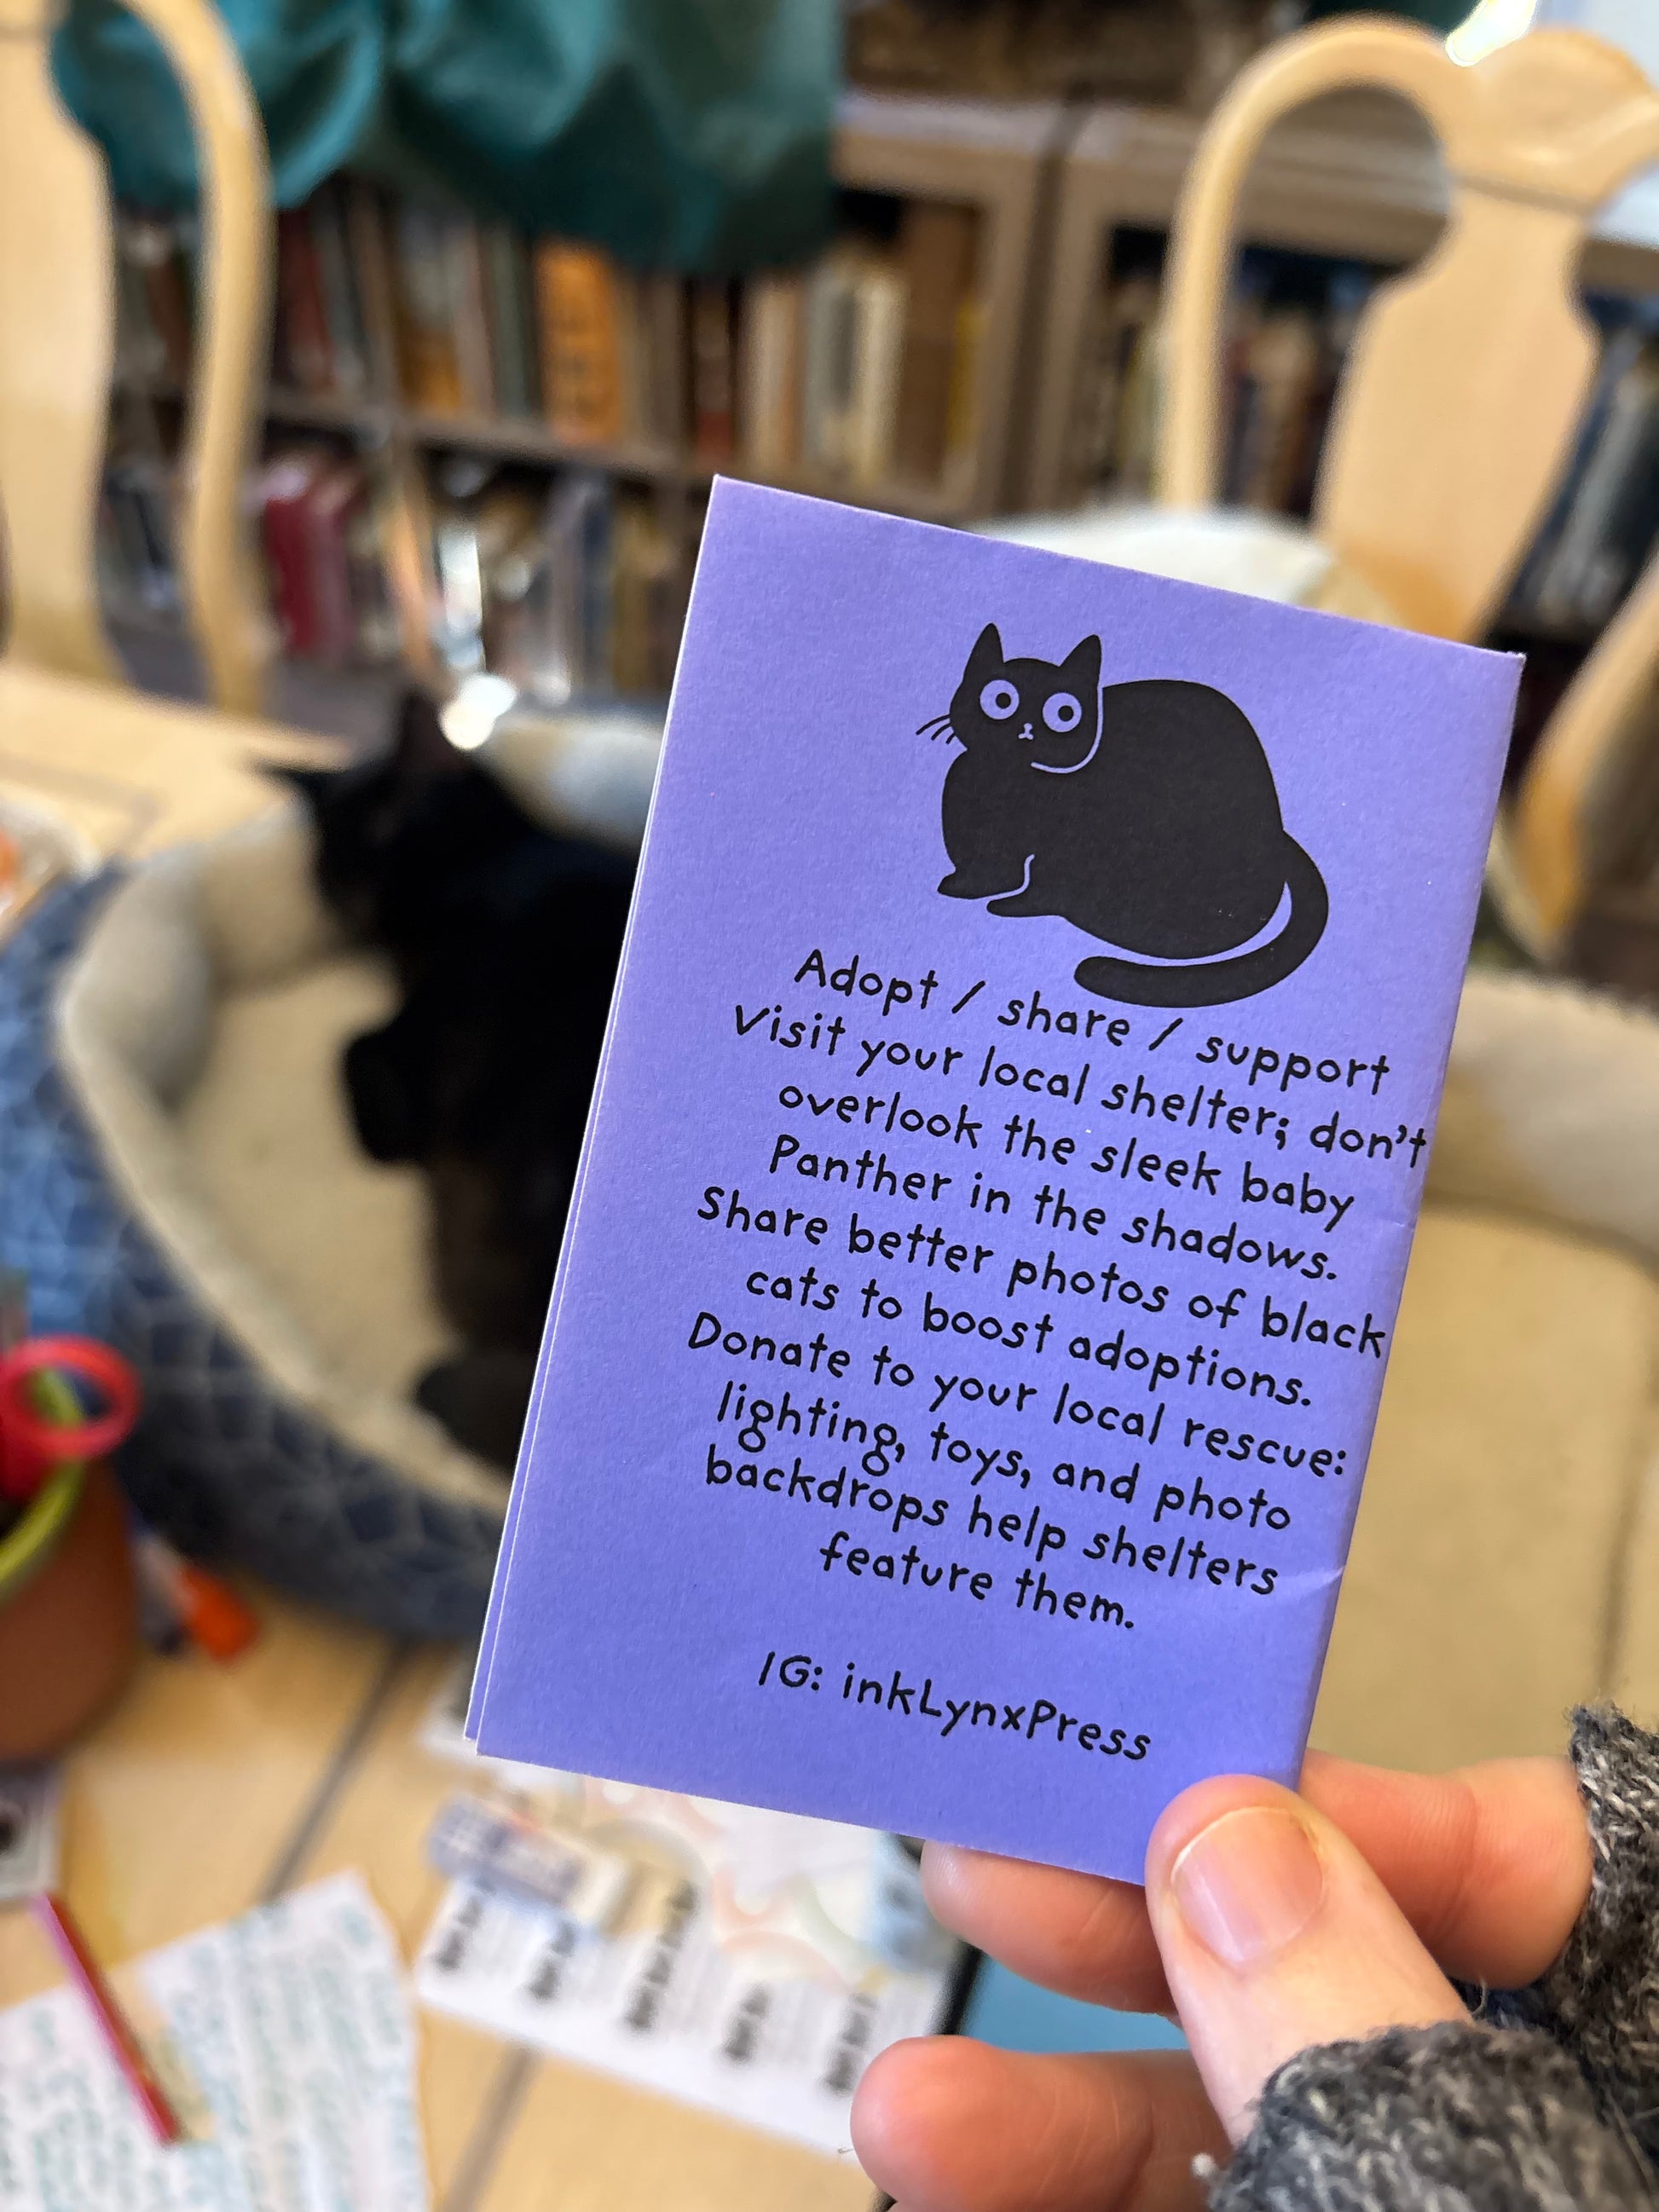 Adopt / share / support
Visit your local shelter; don't
overlook the sleek baby
Panther in the shadows.
Share better photos of black
cats to boost adoptions.
Donate to your local rescue:
lighting, toys, and photo
backdrops help shelters
feature them.
IG: inkLynxPress